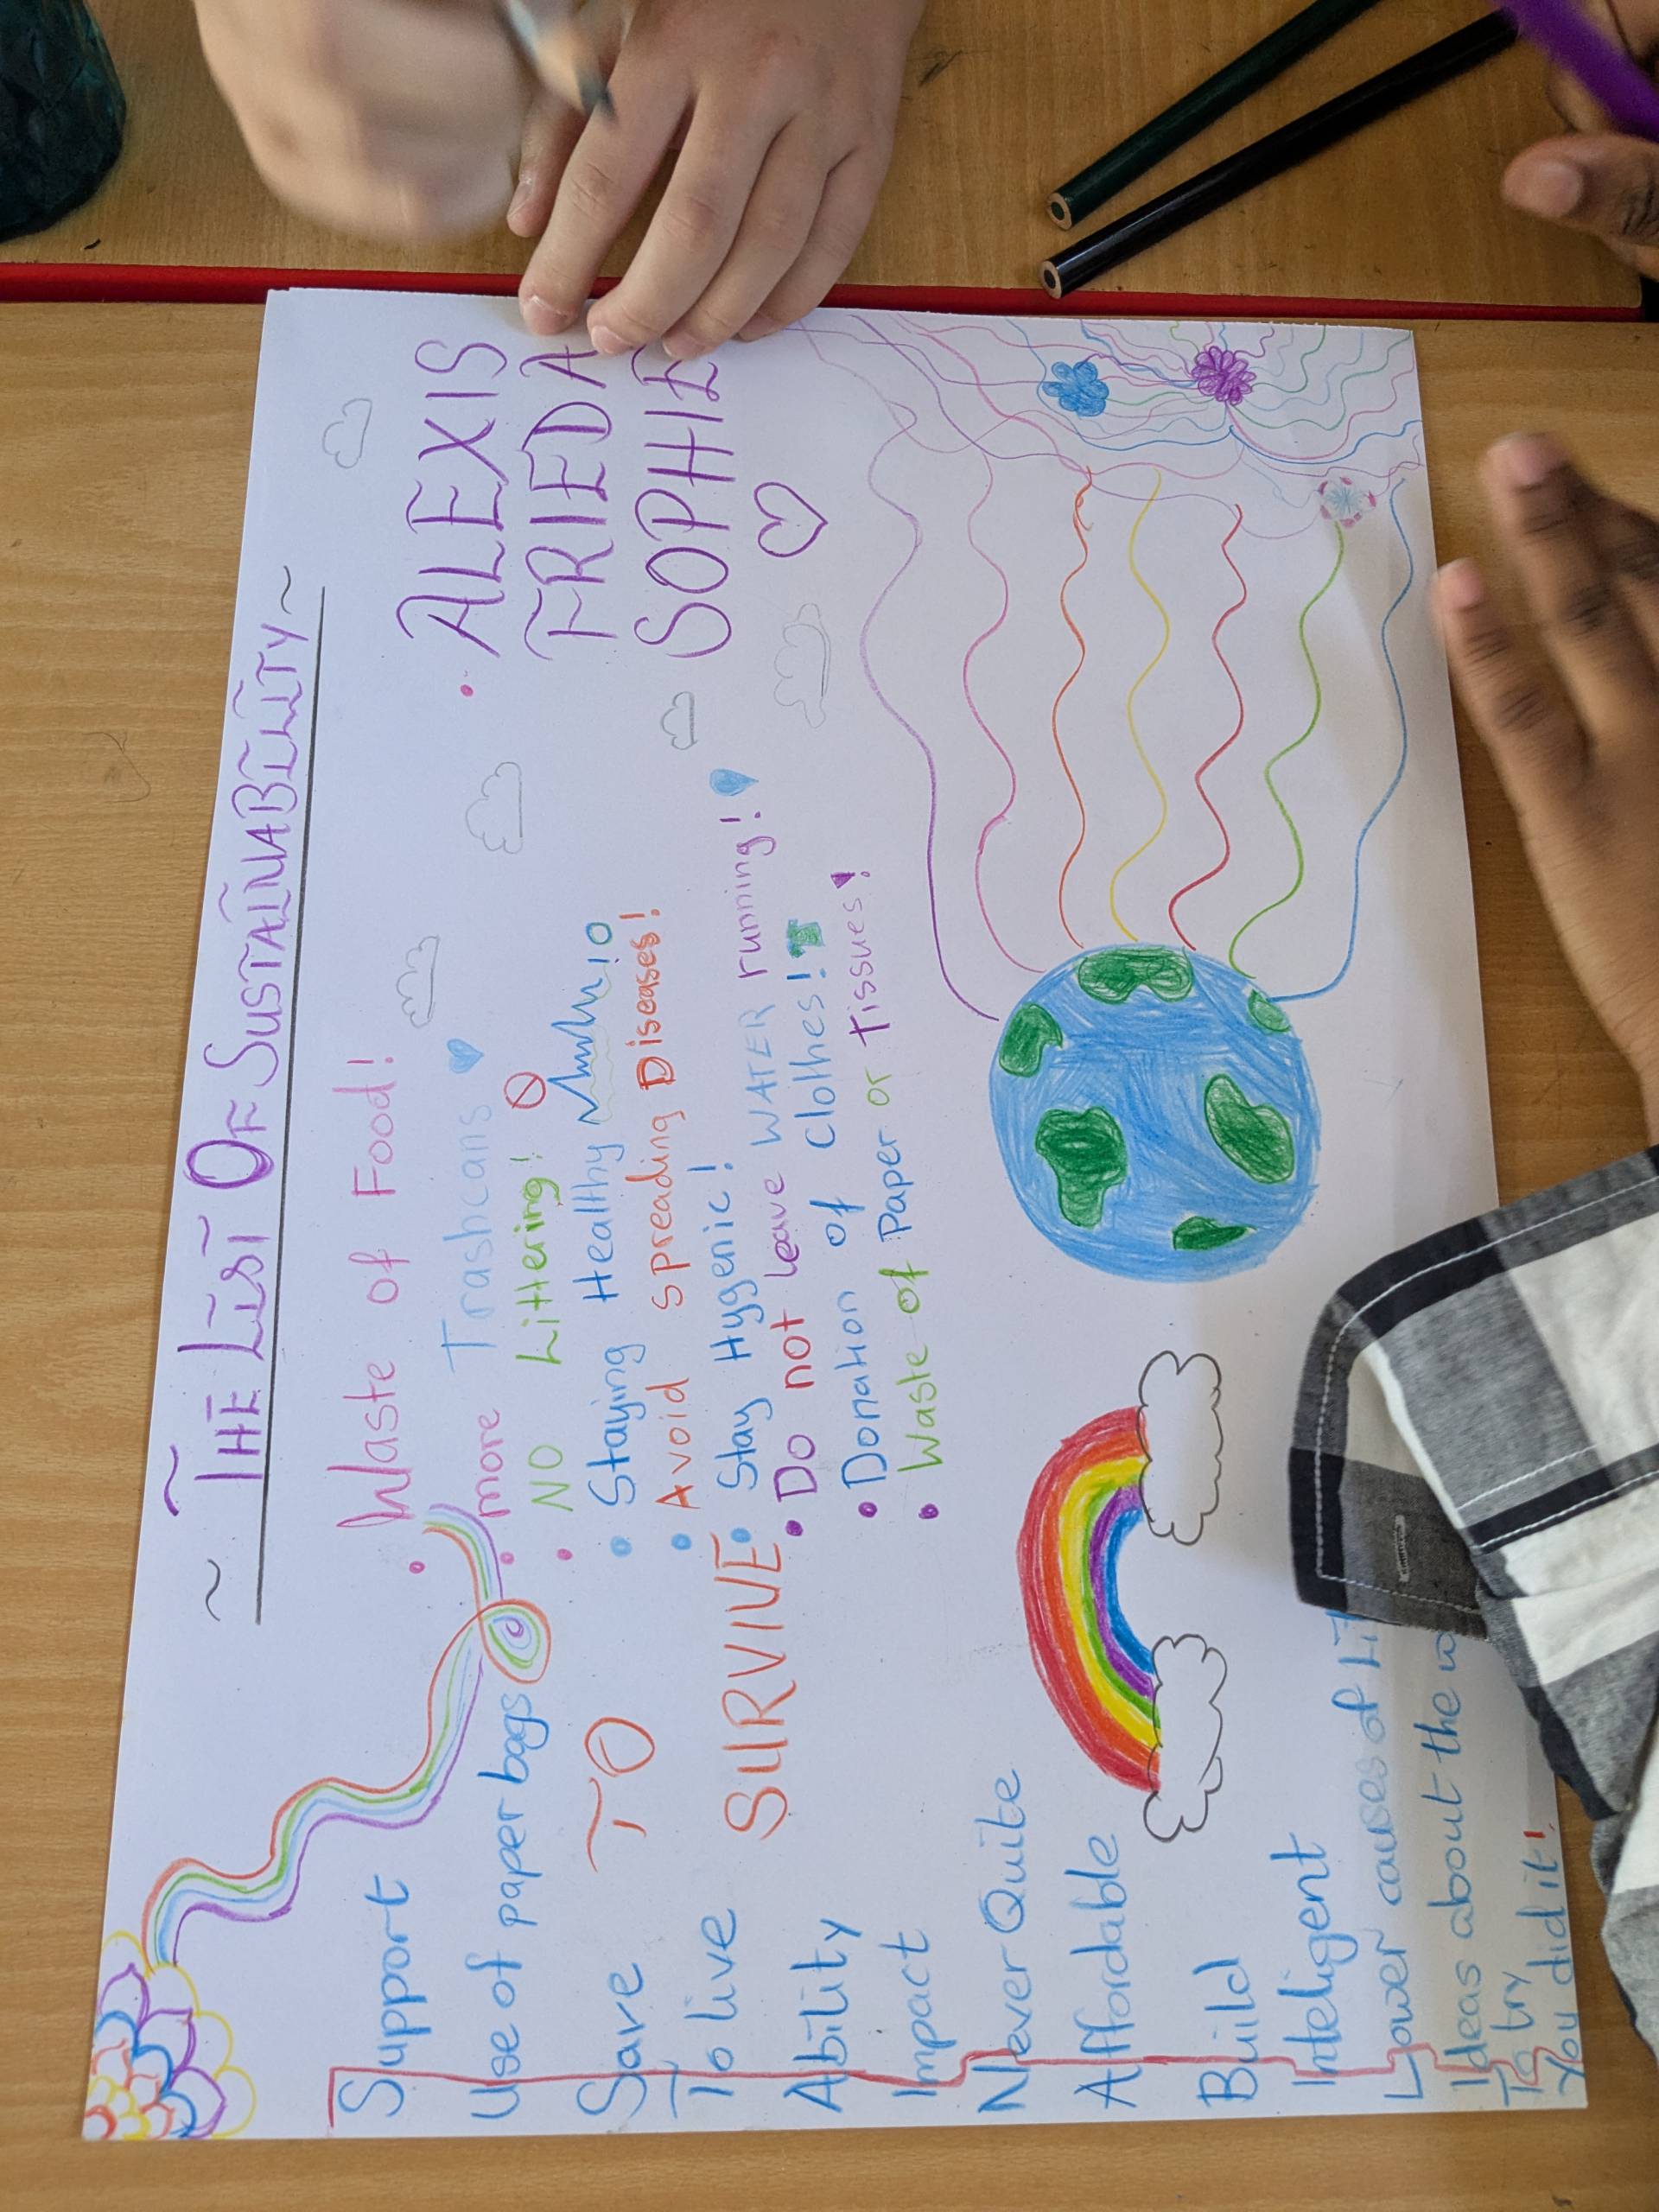 ~ THE LIST OF SUSTAINABILITY ~
• Waste of Food!
• more Trashcans
• NO Littering!
• Staying Healthy
• Avoid spreading Diseases!
• Stay Hygenic!
• Do not leave WATER running!
• Donation of Clothes!
• Waste of Paper or Tissues!
• ALEXIS
FRIEDA
SOPHIE
TO
SURVIVE
Support
Use of paper bags
Save
To live
Ability
Impact
Never Quite
Affordable
Build
Inteligent
Lower causes of
Ideas about the
To try
You did it!